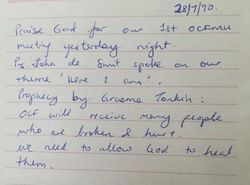 28/7/90.
Praise God for our 1st OCFMU
meeting yesterday night.
Ps John de Smit spoke on our
theme 'Here I am'.
Prophecy by Graeme Tonkin:
OCF will receive many people
who are broken & hurt.
We need to allow God to heal
them.